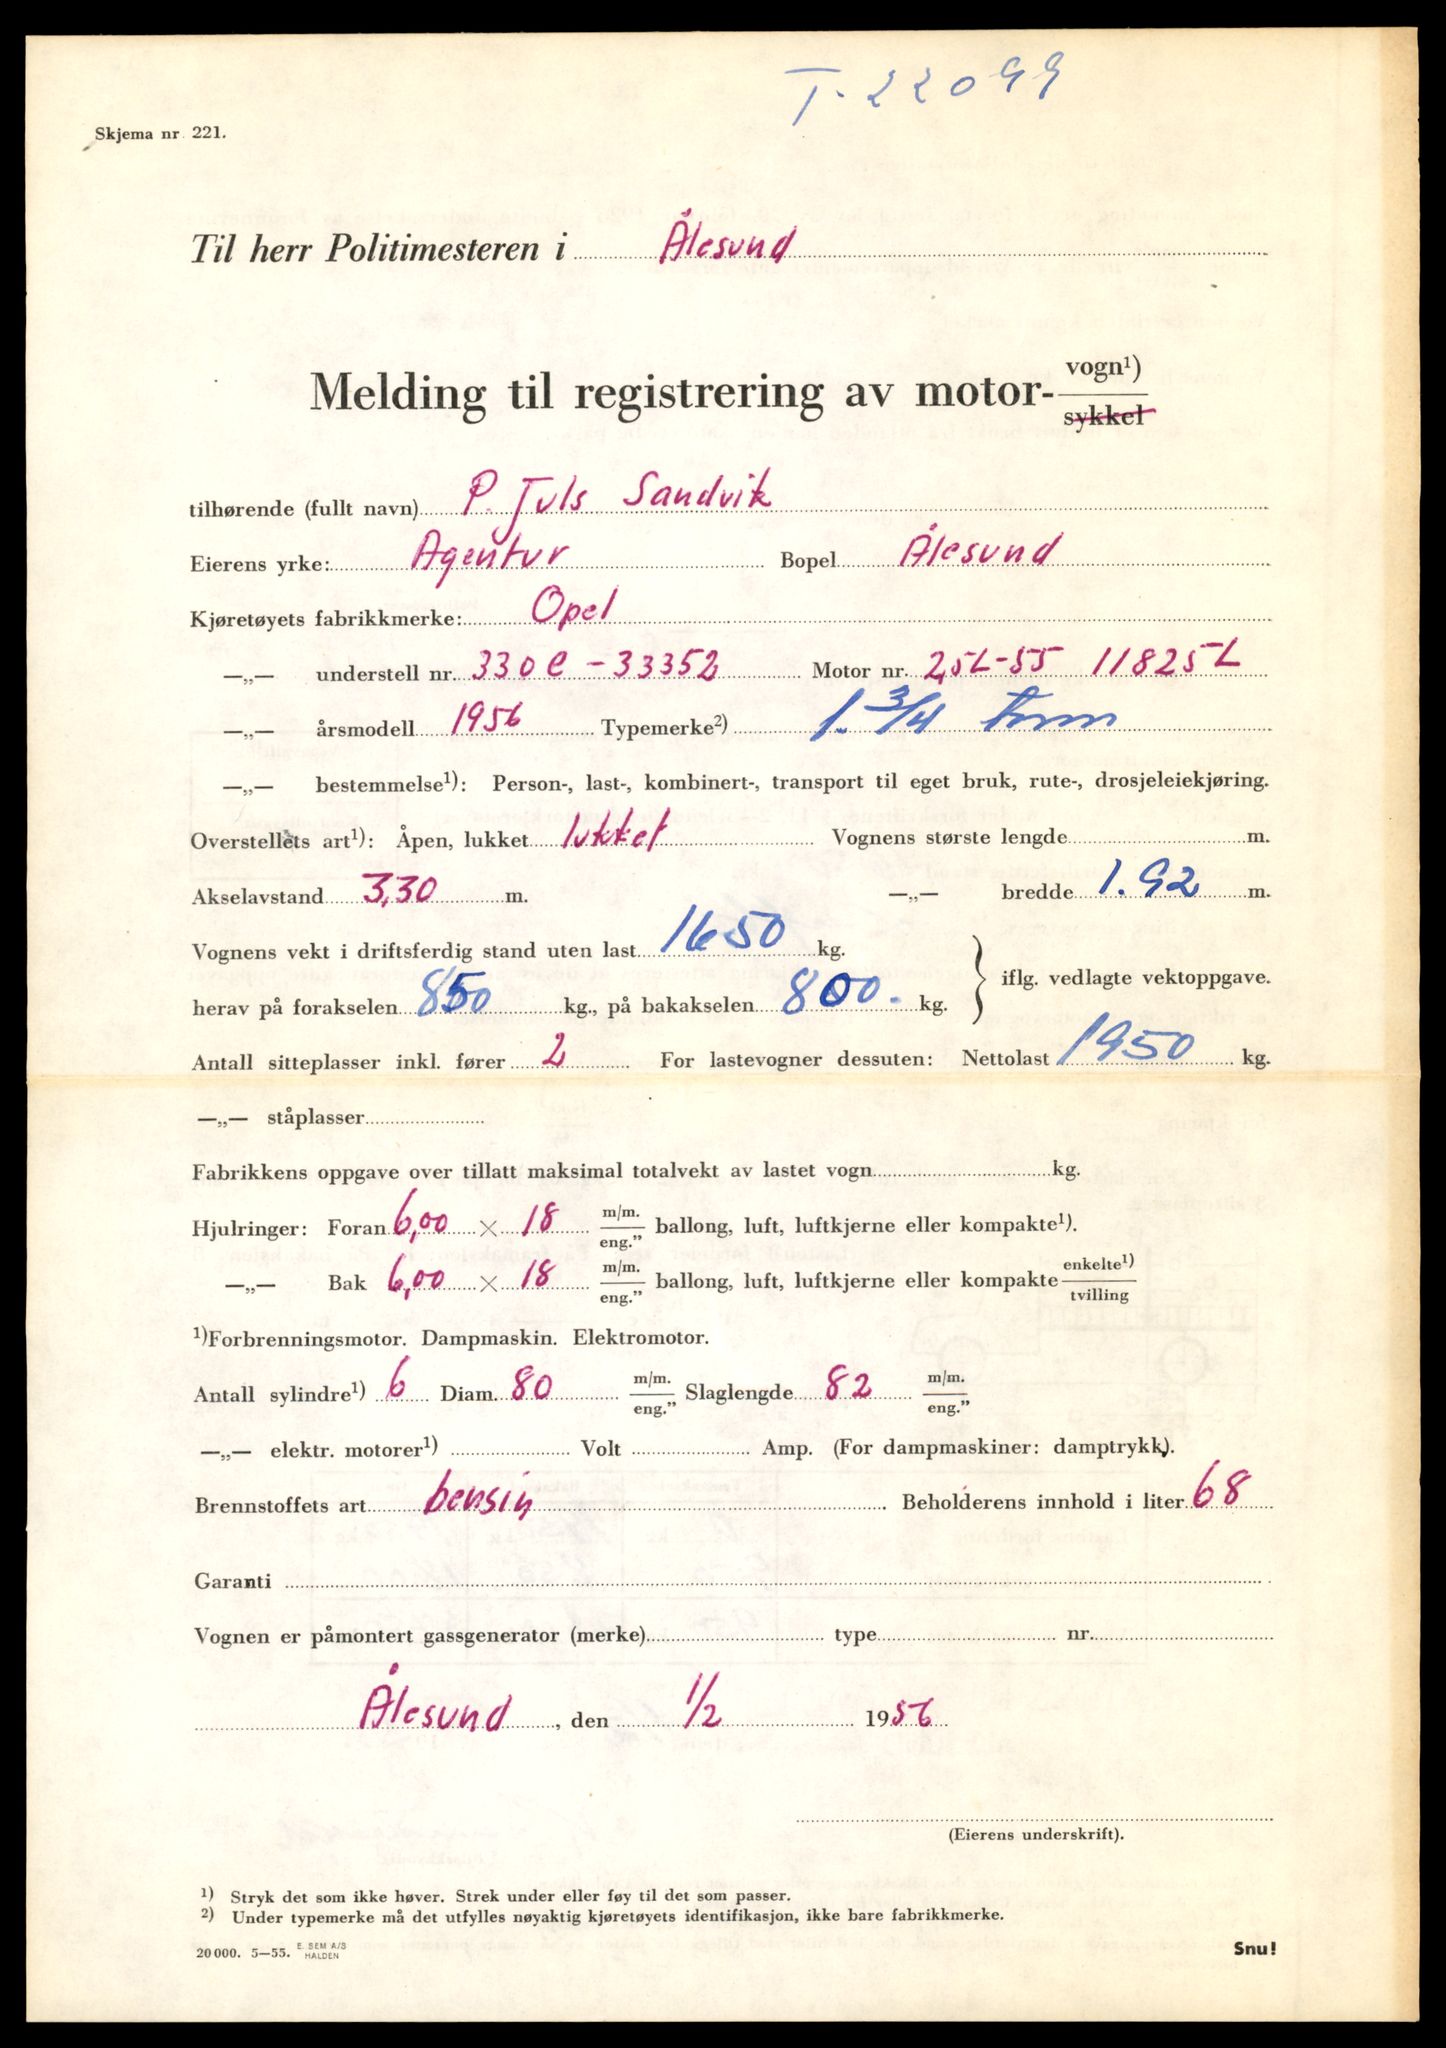 T-22099
Skjema nr. 221.
Til herr Politimesteren i Ålesund
Melding til registrering av motor- vogn¹)
sykkel
tilhørende (fullt navn) P. Juls Sandvik
Eierens yrke: Agentur Bopel Ålesund
Kjøretøyets fabrikkmerke: Opel
—„— understell nr. 330 C - 33352 Motor nr. 2,5L-55 11825L
—„— årsmodell 1956 Typemerke²) 1. 3/4 tonn
—„— bestemmelse¹): Person-, last-, kombinert-, transport til eget bruk, rute-, drosjeleiekjøring.
Overstellets art¹): Åpen, lukket lukket Vognens største lengde m.
Akselavstand 3,30 m. —„— bredde 1.92 m.
Vognens vekt i driftsferdig stand uten last 1650 kg.
herav på forakselen 850 kg., på bakakselen 800. kg. } iflg. vedlagte vektoppgave.
Antall sitteplasser inkl. fører 2 For lastevogner dessuten: Nettolast 1950 kg.
—„— ståplasser
Fabrikkens oppgave over tillatt maksimal totalvekt av lastet vogn kg.
Hjulringer: Foran 6,00 × 18 m/m. eng.” ballong, luft, luftkjerne eller kompakte¹).
—„— Bak 6,00 × 18 m/m. eng.” ballong, luft, luftkjerne eller kompakte enkelte¹) tvilling
¹)Forbrenningsmotor. Dampmaskin. Elektromotor.
Antall sylindre¹) 6 Diam. 80 m/m. eng.” Slaglengde 82 m/m. eng.”
—„— elektr. motorer¹) Volt Amp. (For dampmaskiner: damptrykk).
Brennstoffets art bensin Beholderens innhold i liter 68
Garanti
Vognen er påmontert gassgenerator (merke) type nr.
Ålesund, den 1/2 1956
(Eierens underskrift).
¹) Stryk det som ikke høver. Strek under eller føy til det som passer.
²) Under typemerke må det utfylles nøyaktig kjøretøyets identifikasjon, ikke bare fabrikkmerke.
20 000. 5—55. E. SEM A/S HALDEN Snu!